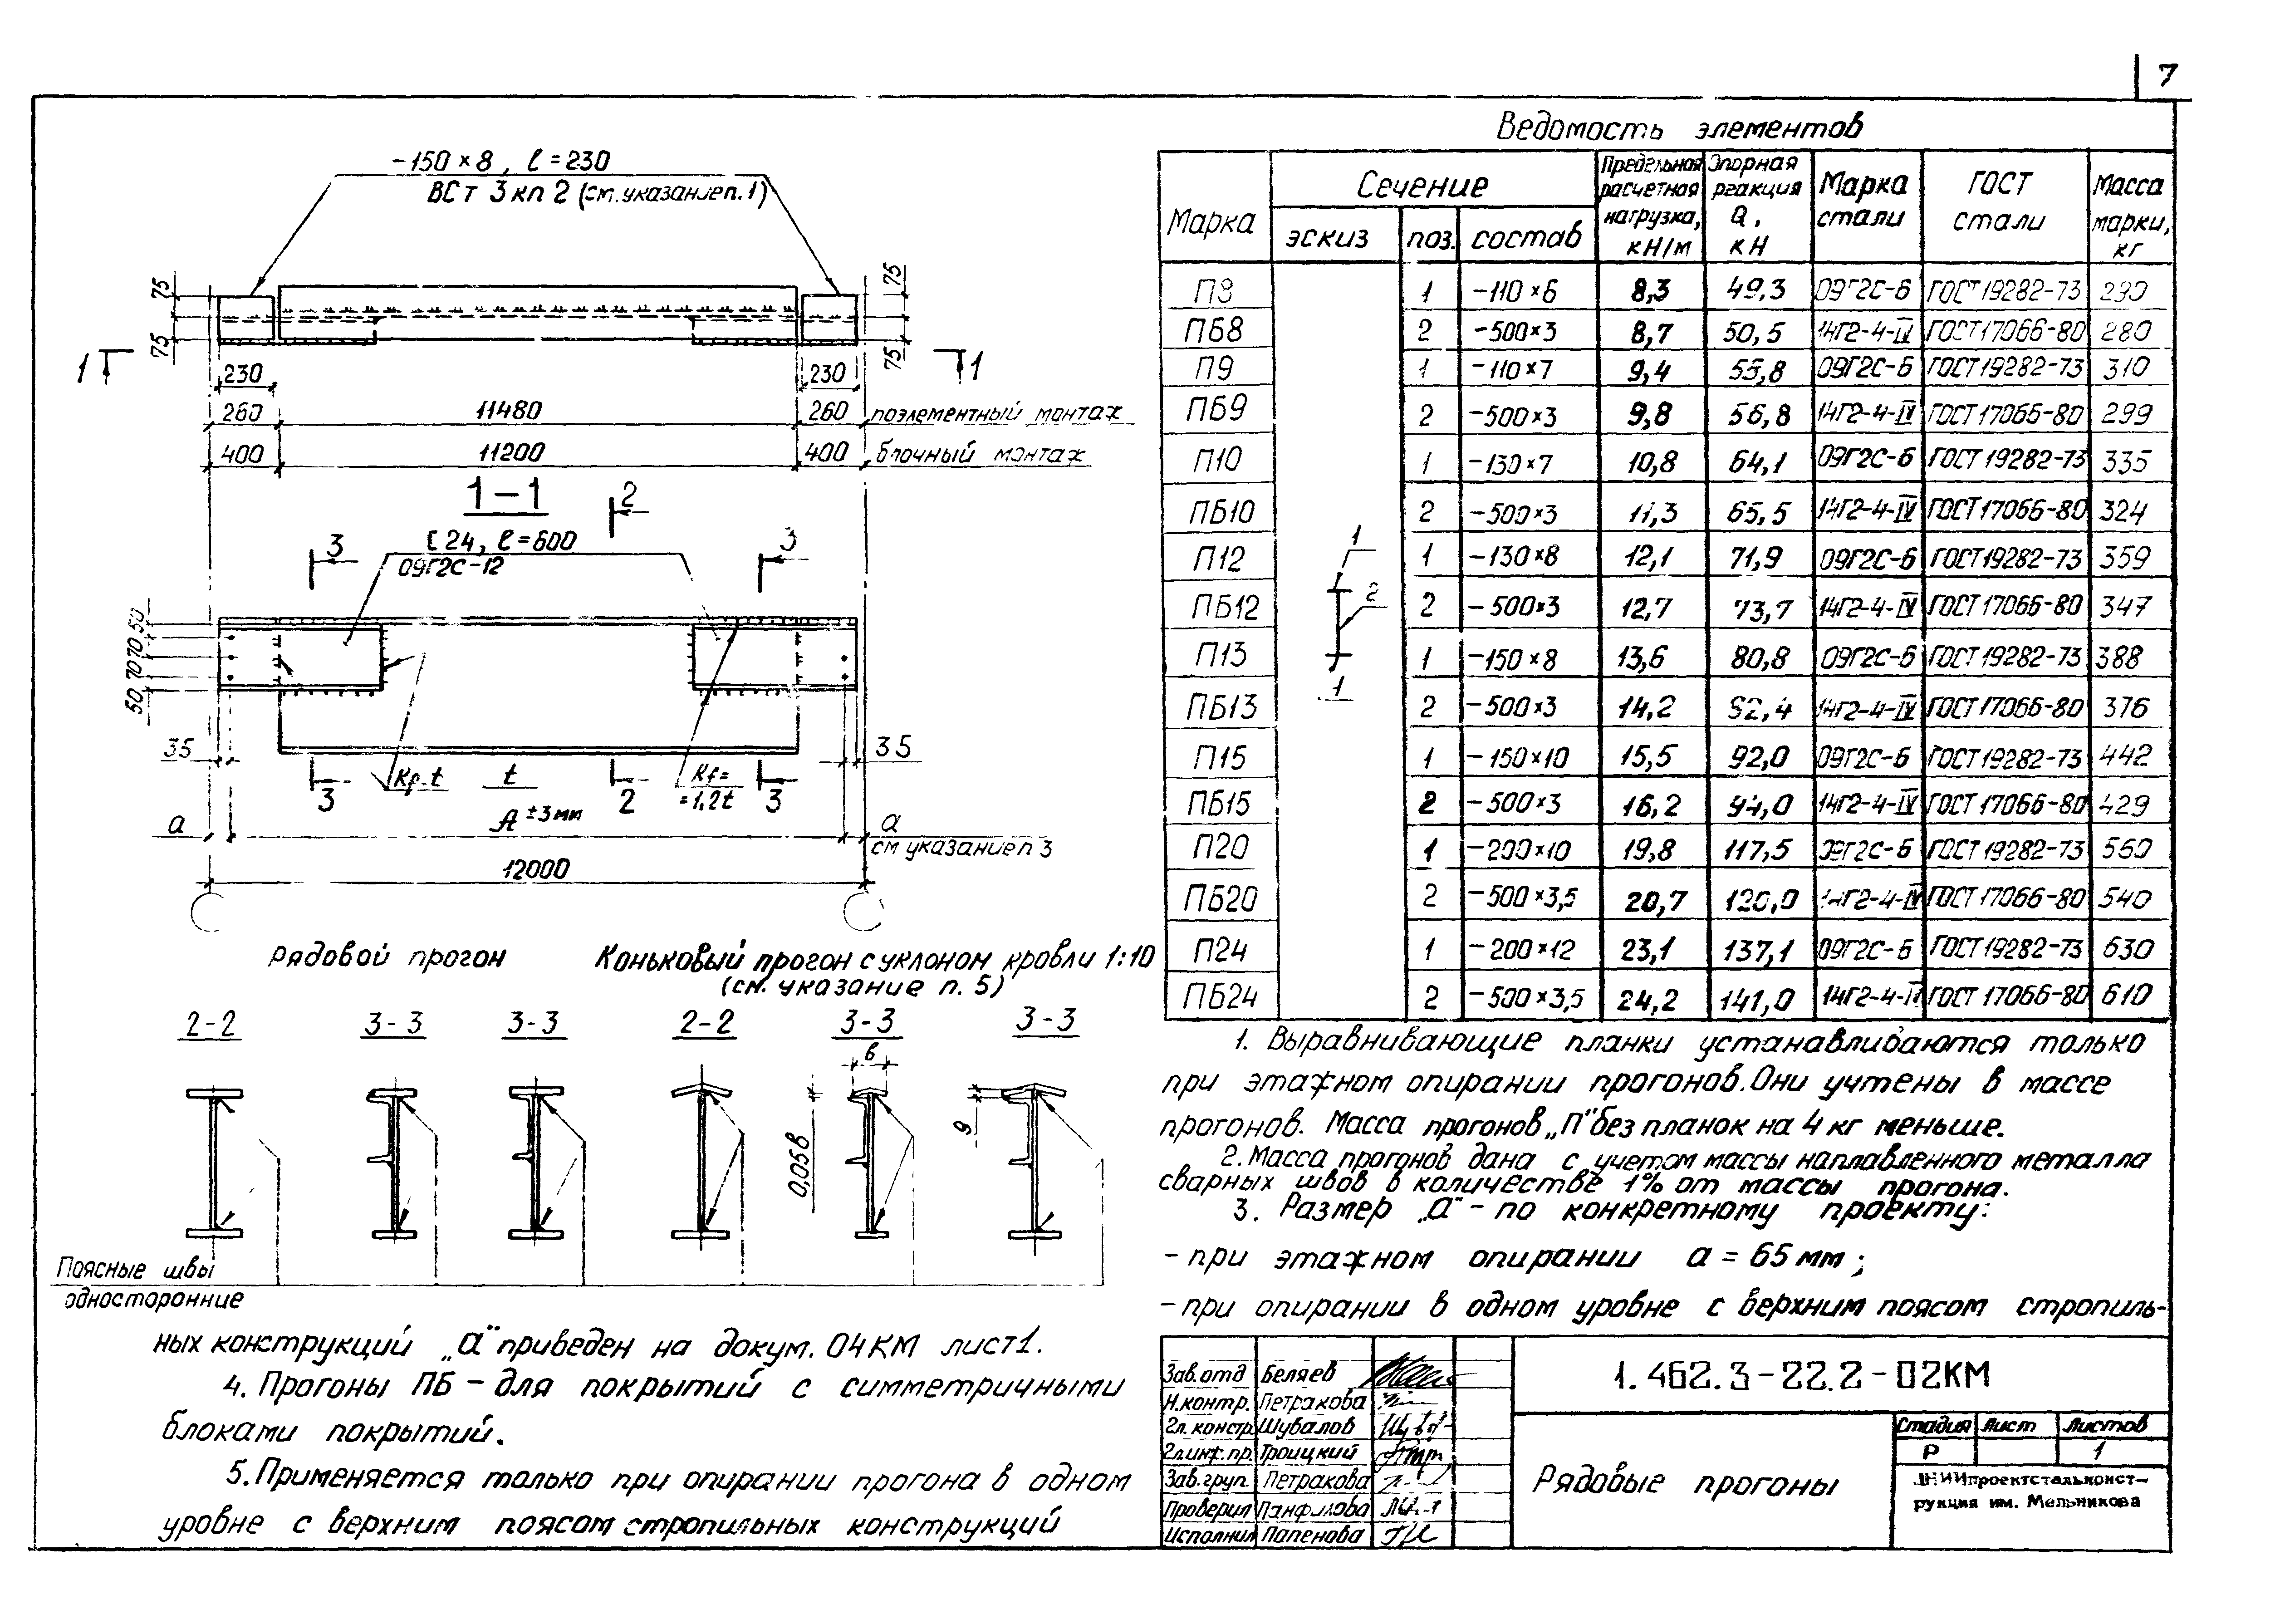 7
-150×8, ℓ=230
ВСт 3кп2 (см. указание п.1)
75
75
75
75
1
1
230
230
260
11480
260
поэлементный монтаж
400
11200
400
блочный монтаж
1-1
2
3
[24, ℓ=600
09Г2С-12
3
50
70
70
50
35
35
Kf=t
t
Kf=
=1,2t
3
2
3
a
A ±3мм
a
см указание п 3
12000
Рядовой прогон
Коньковый прогон с уклоном кровли 1:10
(см. указание п. 5)
2-2
3-3
3-3
2-2
3-3
3-3
в
0,05в
9
Поясные швы
односторонние
Ведомость элементов
Марка
Сечение
Предельная расчетная нагрузка, кН/м
Опорная реакция Q, кН
Марка стали
ГОСТ стали
Масса марки, кг
эскиз
поз.
состав
П8 1 -110×6 8,3 49,3 09Г2С-6 ГОСТ 19282-73 290
ПБ8 2 -500×3 8,7 50,5 14Г2-4-IV ГОСТ 17066-80 280
П9 1 -110×7 9,4 55,8 09Г2С-6 ГОСТ 19282-73 310
ПБ9 2 -500×3 9,8 56,8 14Г2-4-IV ГОСТ 17066-80 299
П10 1 -130×7 10,8 64,1 09Г2С-6 ГОСТ 19282-73 335
ПБ10 2 -500×3 11,3 65,5 14Г2-4-IV ГОСТ 17066-80 324
П12 1 -130×8 12,1 71,9 09Г2С-6 ГОСТ 19282-73 359
ПБ12 2 -500×3 12,7 73,7 14Г2-4-IV ГОСТ 17066-80 347
П13 1 -150×8 13,6 80,8 09Г2С-6 ГОСТ 19282-73 388
ПБ13 2 -500×3 14,2 14Г2-4-IV ГОСТ 17066-80 376
П15 1 -150×10 15,5 92,0 09Г2С-6 ГОСТ 19282-73 442
ПБ15 2 -500×3 16,2 94,0 14Г2-4-IV ГОСТ 17066-80 429
П20 1 -200×10 19,8 117,5 09Г2С-6 ГОСТ 19282-73 560
ПБ20 2 -500×3,5 20,7 120,0 14Г2-4-IV ГОСТ 17066-80 540
П24 1 -200×12 23,1 137,1 09Г2С-6 ГОСТ 19282-73 630
ПБ24 2 -500×3,5 24,2 141,0 14Г2-4-IV ГОСТ 17066-80 610
1
2
1
1. Выравнивающие планки устанавливаются только
при этажном опирании прогонов. Они учтены в массе
прогонов. Масса прогонов „П" без планок на 4 кг меньше.
2. Масса прогонов дана с учетом массы наплавленного металла
сварных швов в количестве 1% от массы прогона.
3. Размер „a" - по конкретному проекту:
- при этажном опирании a = 65 мм;
- при опирании в одном уровне с верхним поясом стропиль-
ных конструкций „a" приведен на докум. 04КМ лист 1.
4. Прогоны ПБ - для покрытий с симметричными
блоками покрытий.
5. Применяется только при опирании прогона в одном
уровне с верхним поясом стропильных конструкций
Зав. отд Беляев
Н.контр. Петракова
Гл. констр. Шубалов
Гл.инж.пр. Троицкий
Зав. груп. Петракова
Проверил Панфилова
Исполнил Папенова
1.462.3-22.2-02КМ
Рядовые прогоны
Стадия Лист Листов
Р 1
ЦНИИпроектстальконст-
рукция им. Мельникова